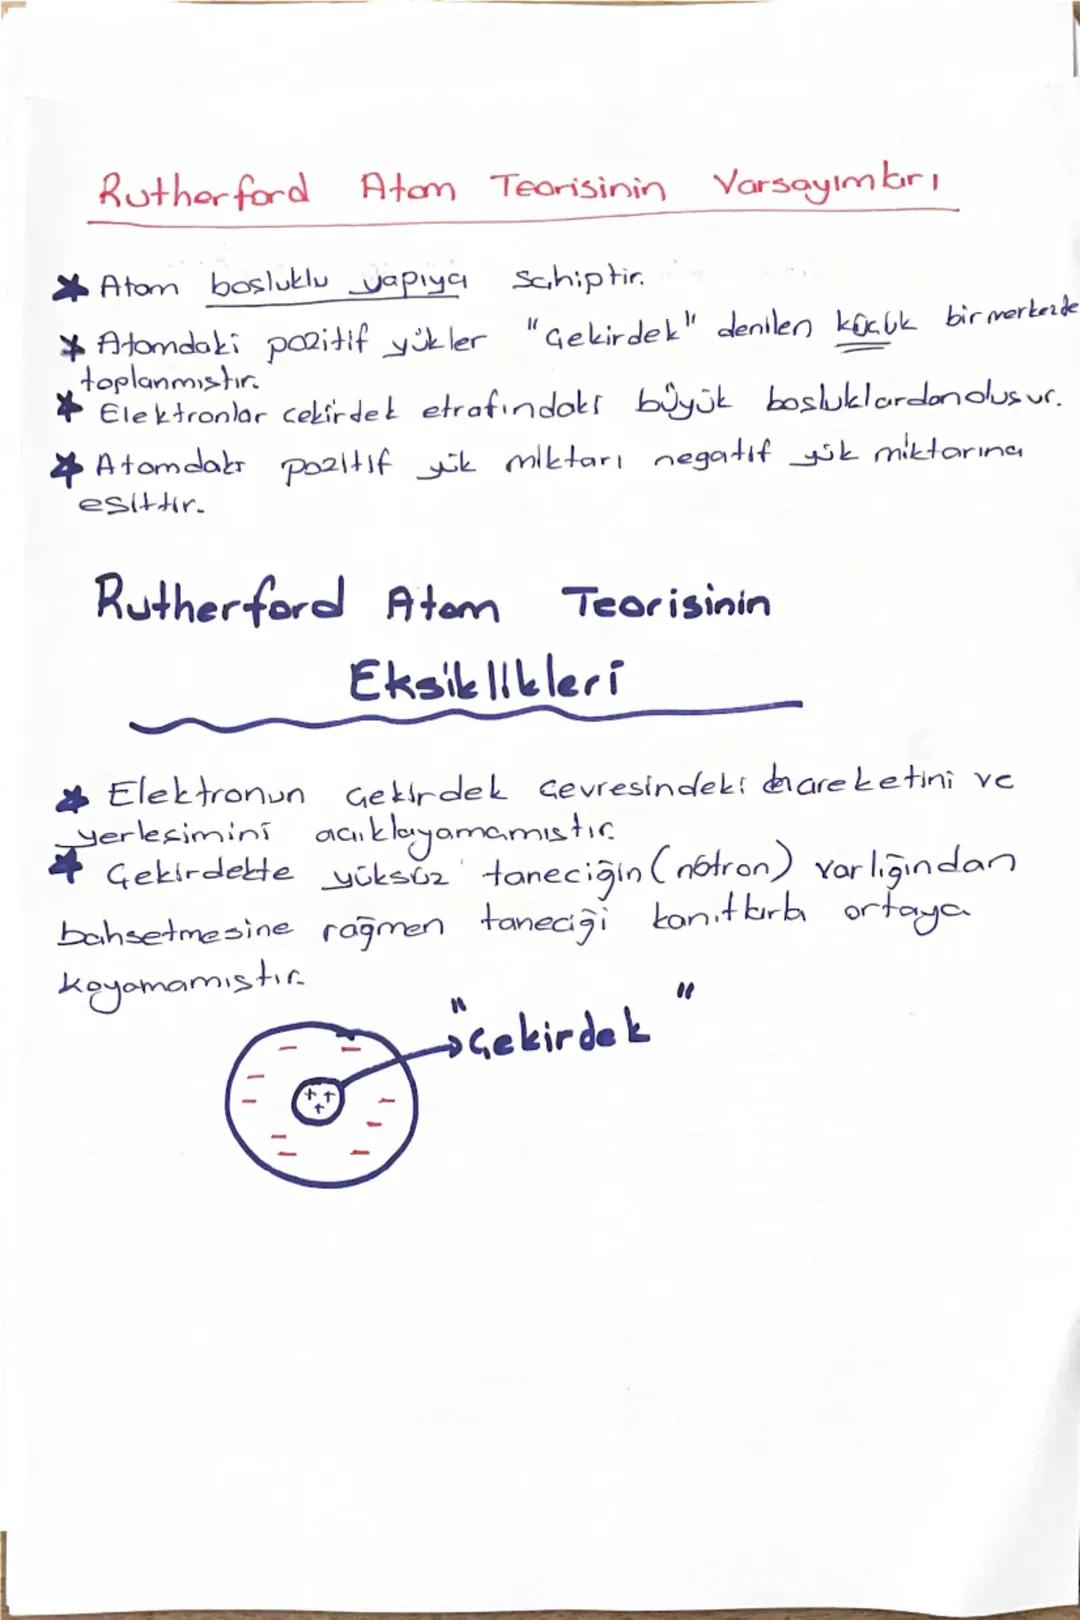 Rutherford Atom Teorisinin Varsayımları
* Atom bosluklu yapıya sahiptir.
* Atomdaki pozitif yükler "Çekirdek" denilen küçük bir merkezde
toplanmıstır.
* Elektronlar cekirdek etrafındaki büyük bosluklardan olusur.
* Atomdaki pozitif yük miktarı negatif yük miktarına
esittir.
Rutherford Atom Teorisinin
Eksiklikleri
* Elektronun Çekirdek Çevresindeki hareketini ve
yerlesimini açıklayamamıstır.
* Çekirdekte yüksüz taneciğin (nötron) varlığından
bahsetmesine rağmen taneciği kanıtlarla ortaya
koyamamıstır.
"Çekirdek"
+ + +